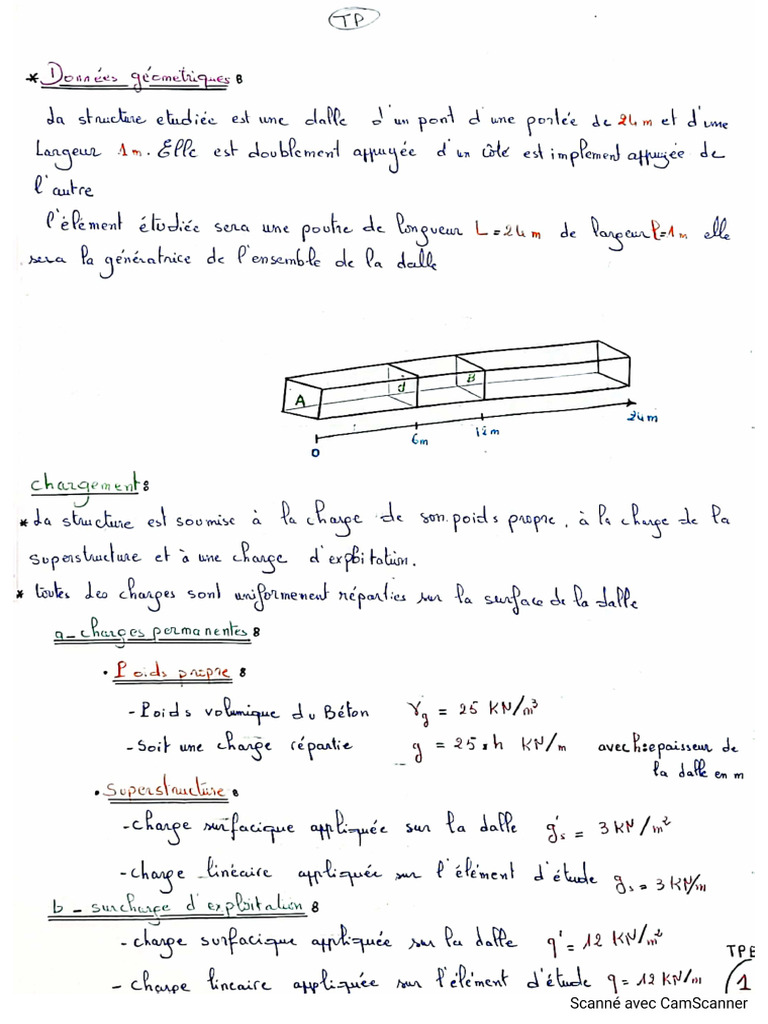 TP
* Données géometriques :
La structure etudiée est une dalle d'un pont d'une portée de 24 m et d'une
Largeur 1m. Elle est doublement appuyée d'un côté est implement appuyée de
l'autre
l'élément étudiée sera une poutre de longueur L=24 m de largeur l=1 m elle
sera la génératrice de l'ensemble de la dalle
A d B
0 6m 12m 24m
chargement :
* La structure est soumise à la charge de son poids propre, à la charge de la
superstructure et à une charge d'exploitation.
* toutes des charges sont uniformement réparties sur la surface de la dalle
a- charges permanentes :
• Poids propre :
- Poids volumique du Béton γg = 25 KN/m³
- Soit une charge répartie g = 25 x h KN/m avec h: epaisseur de
la dalle en m
• Superstructure :
- charge surfacique appliquée sur la dalle g's = 3 KN/m²
- charge linéaire appliquée sur l'élément d'étude gs = 3 KN/m
b - surcharge d'exploitation :
- charge surfacique appliquée sur la dalle q' = 12 KN/m²
- charge lineaire appliquée sur l'élément d'étude q = 12 KN/m
TPB
1
Scanné avec CamScanner